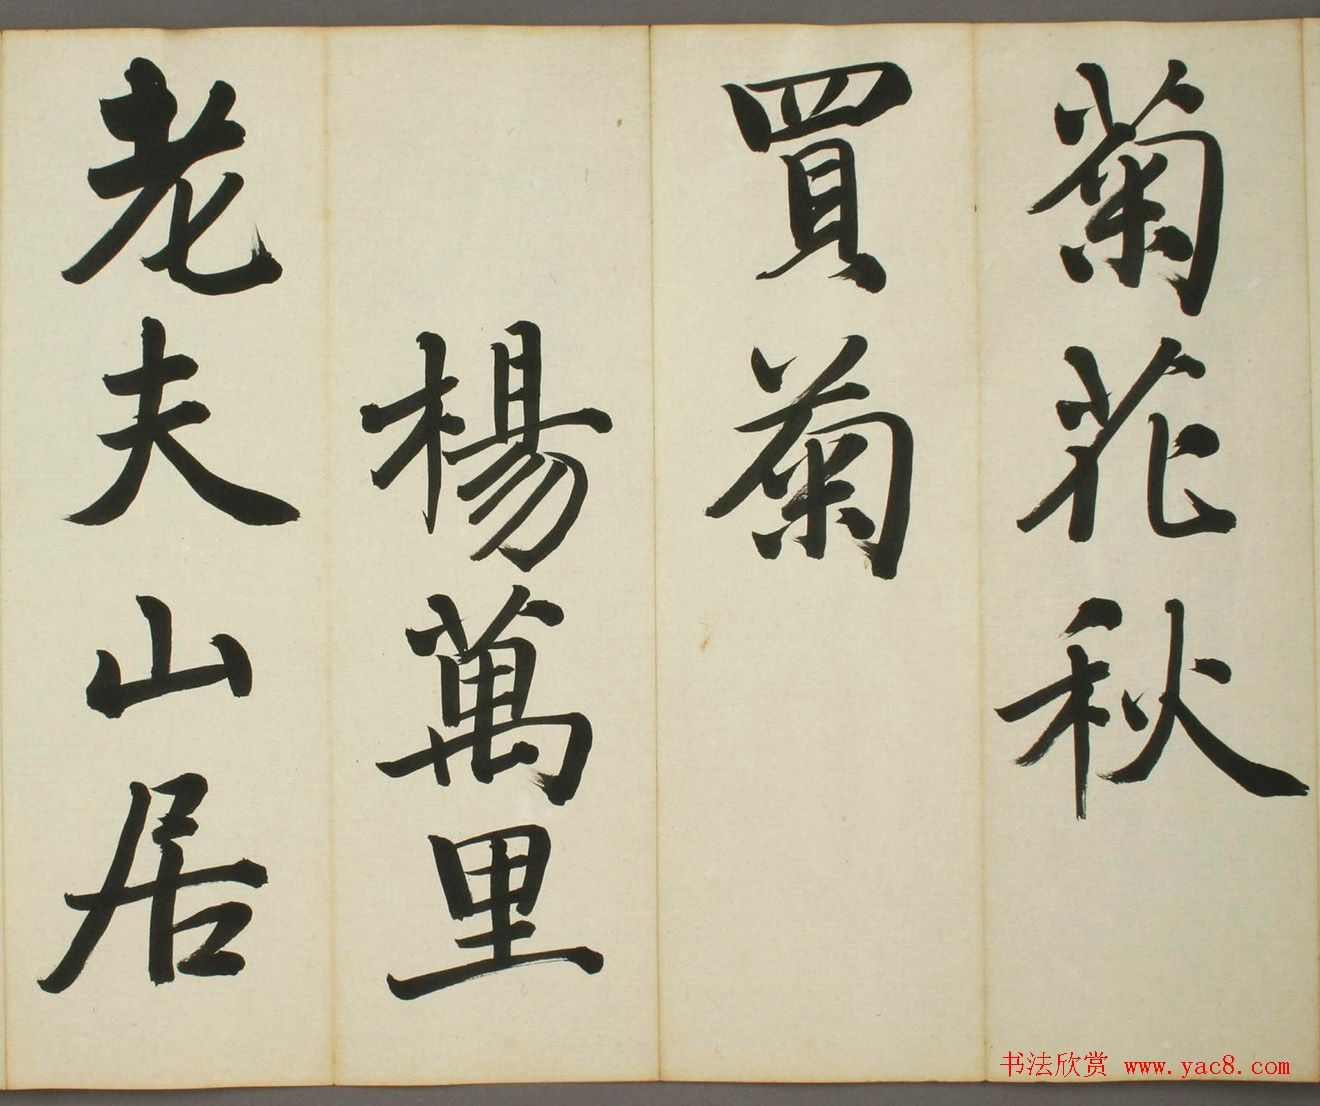 菊花秋
買菊
楊萬里
老夫山居
书法欣赏 www.yac8.com